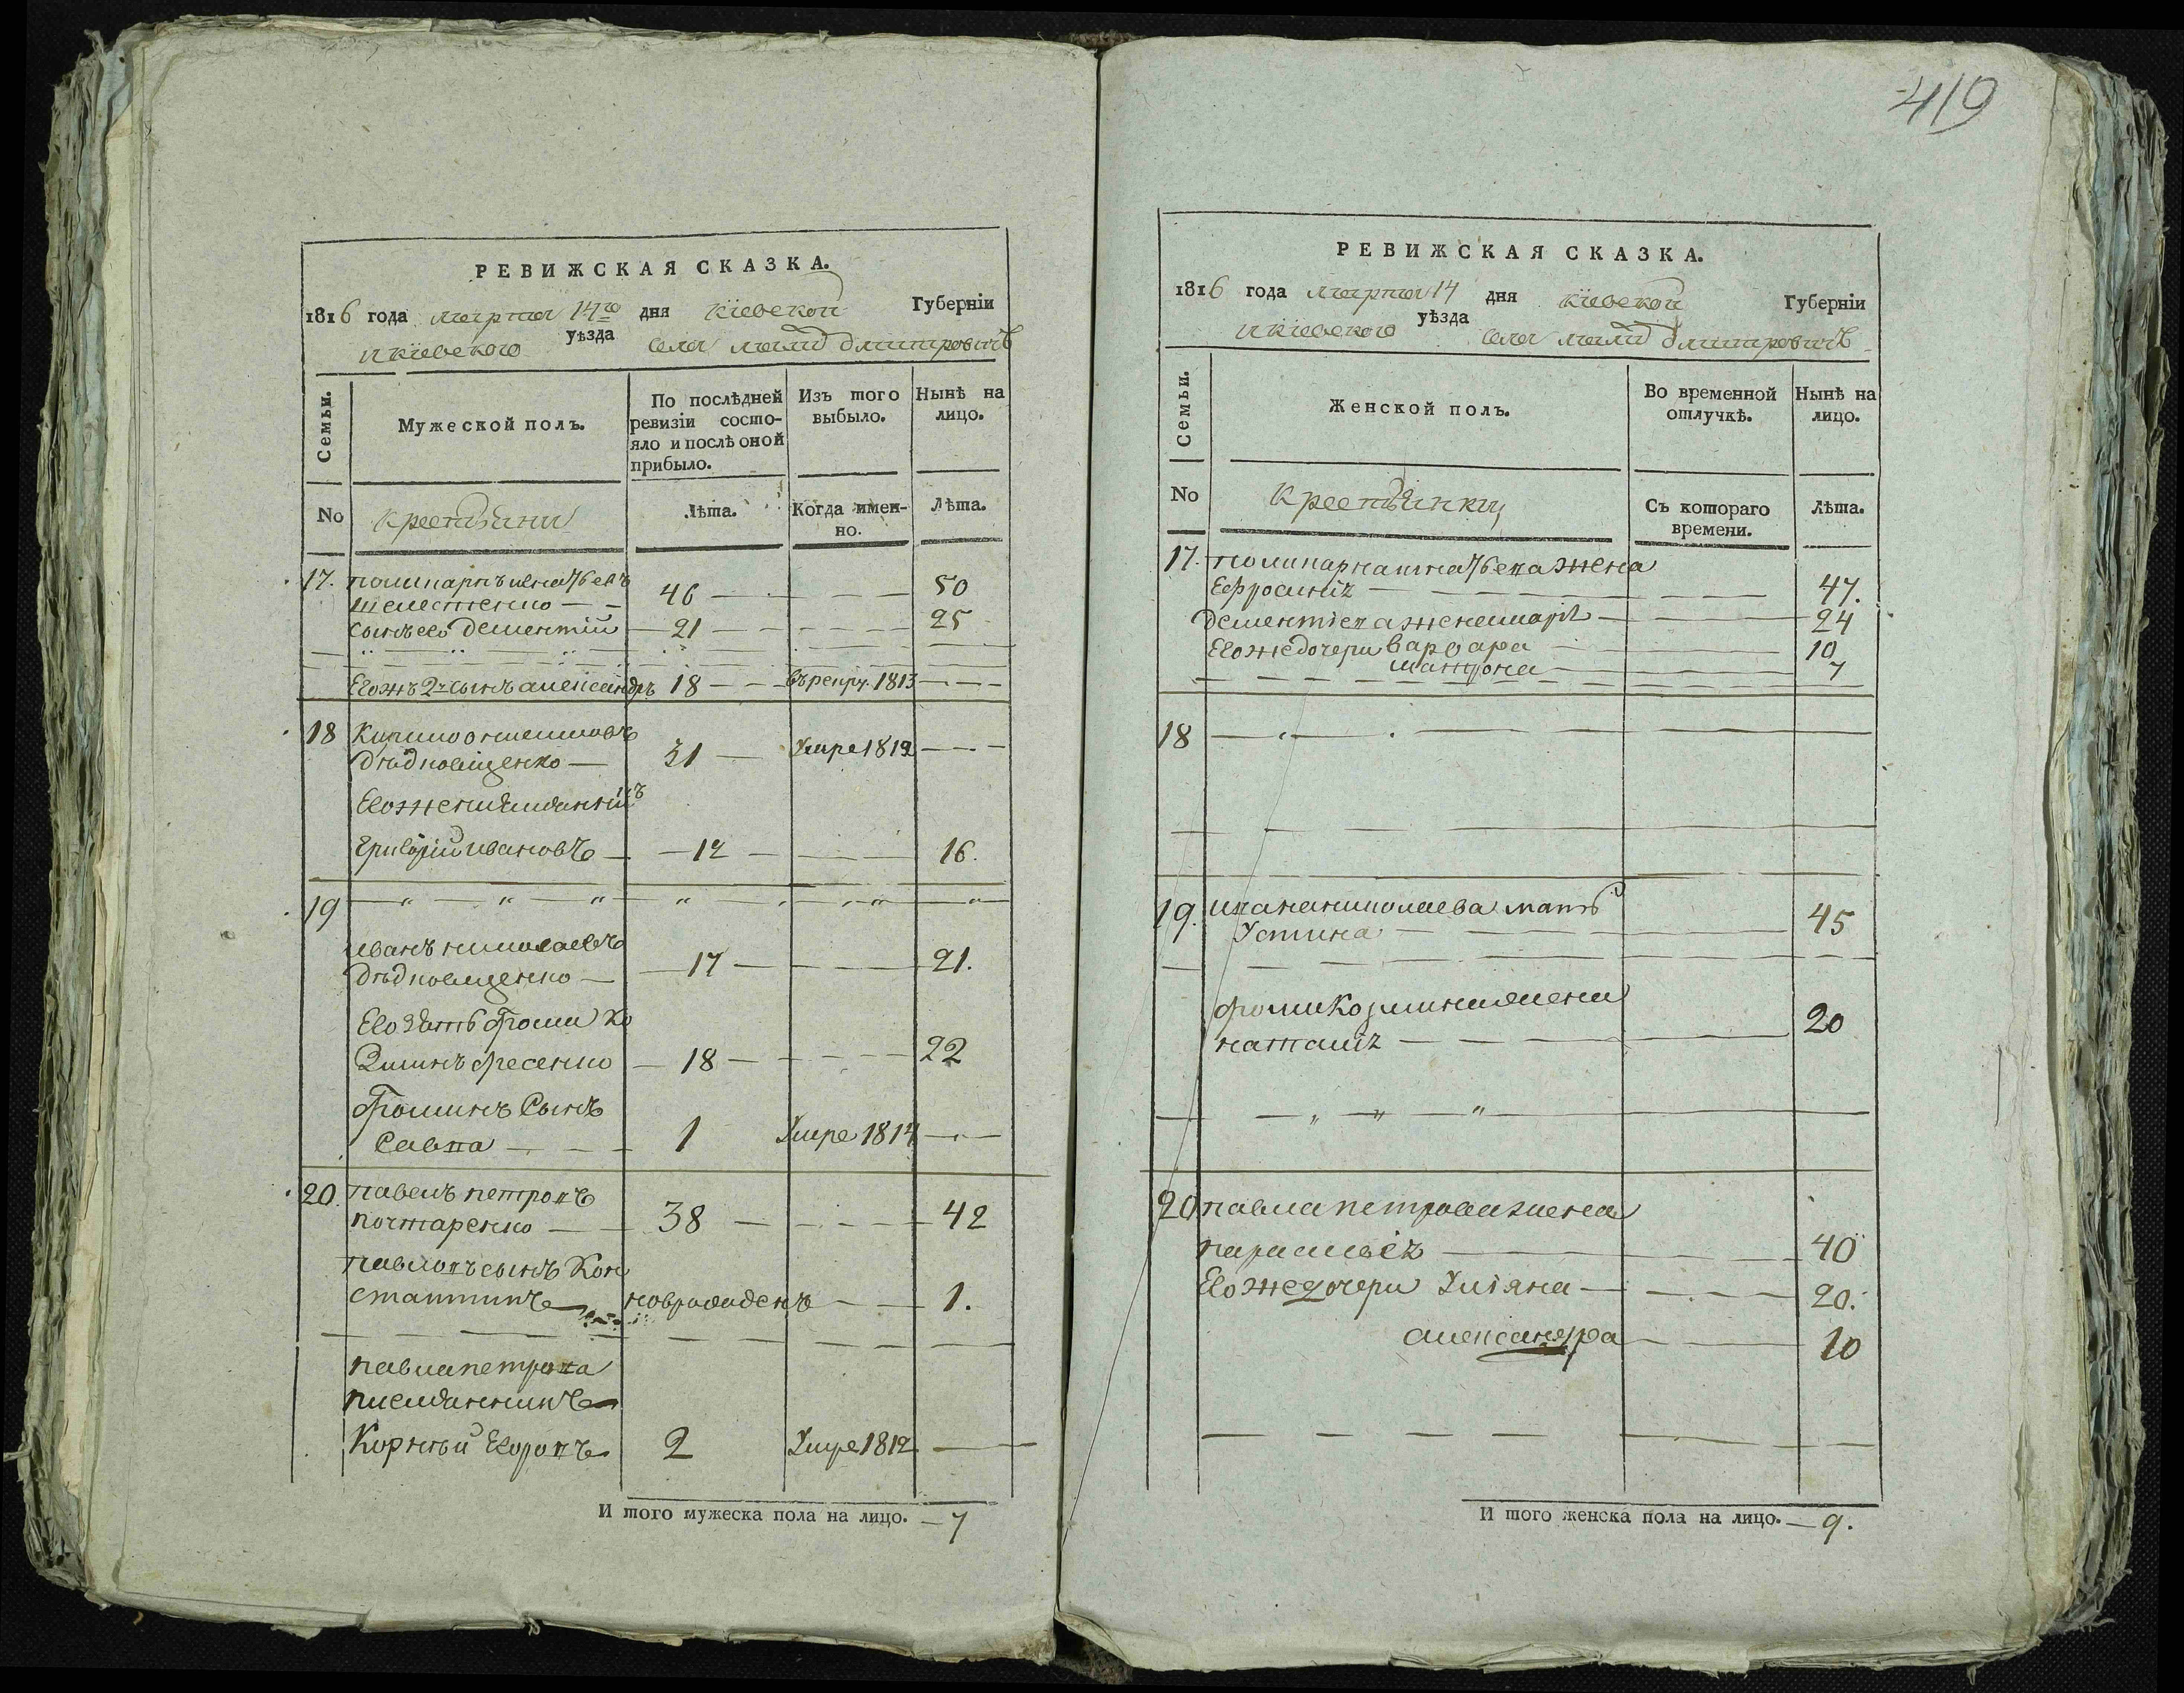 419
РЕВИЖСКАЯ СКАЗКА.
1816 года марта 14го дня кіевской Губерніи
и кіевского уѣзда села малы дмитровичъ
Семьи.
Мужеской полъ.
По послѣдней ревизіи состо-
яло и послѣ оной
прибыло.
Изъ того
выбыло.
Нынѣ на
лицо.
No
крестьяни
Лѣта.
Когда имен-
но.
Лѣта.
17. поликарпъ игнатьевъ
46 50
сынъ его дементий 21 25
Его жъ 2й сынъ александръ 18 въ рекру. 1813
18 Кирило
дѣдковщенко 31 Умре 1812
Его же племянникъ
Григорій ивановъ 12 16.
19
иванъ николаевъ
дѣдковщенко 17 21.
Его зять Фома Ко
зминъ фесенко 18 22
Фоминъ Сынъ
Савва 1 Умре 1814
20. павелъ петровъ
почтаренко 38 42
павловъ сынъ Кон
стантинъ новрожденъ 1.
павла петрова
племянникъ
Корней Егоровъ 2 Умре 1812
И того мужеска пола на лицо. 7
РЕВИЖСКАЯ СКАЗКА.
1816 года марта 14 дня кіевской Губерніи
и кіевского уѣзда села малы дмитровичъ
Семьи.
Женской полъ.
Во временной
отлучкѣ.
Нынѣ на
лицо.
No
крестьянки
Съ котораго
времени.
Лѣта.
17. поликарпа игнатьева жена
Ефросинія 47.
дементіева жена марія 24
Его же дочери варвара 10
матрона 7
18
19. ивана николаева мать
Устина 45
фомы Козмина жена
наталія 20
20 павла петрова жена
параскевія 40
Его же дочери Уліяна 20.
александра 10
И того женска пола на лицо. 9.